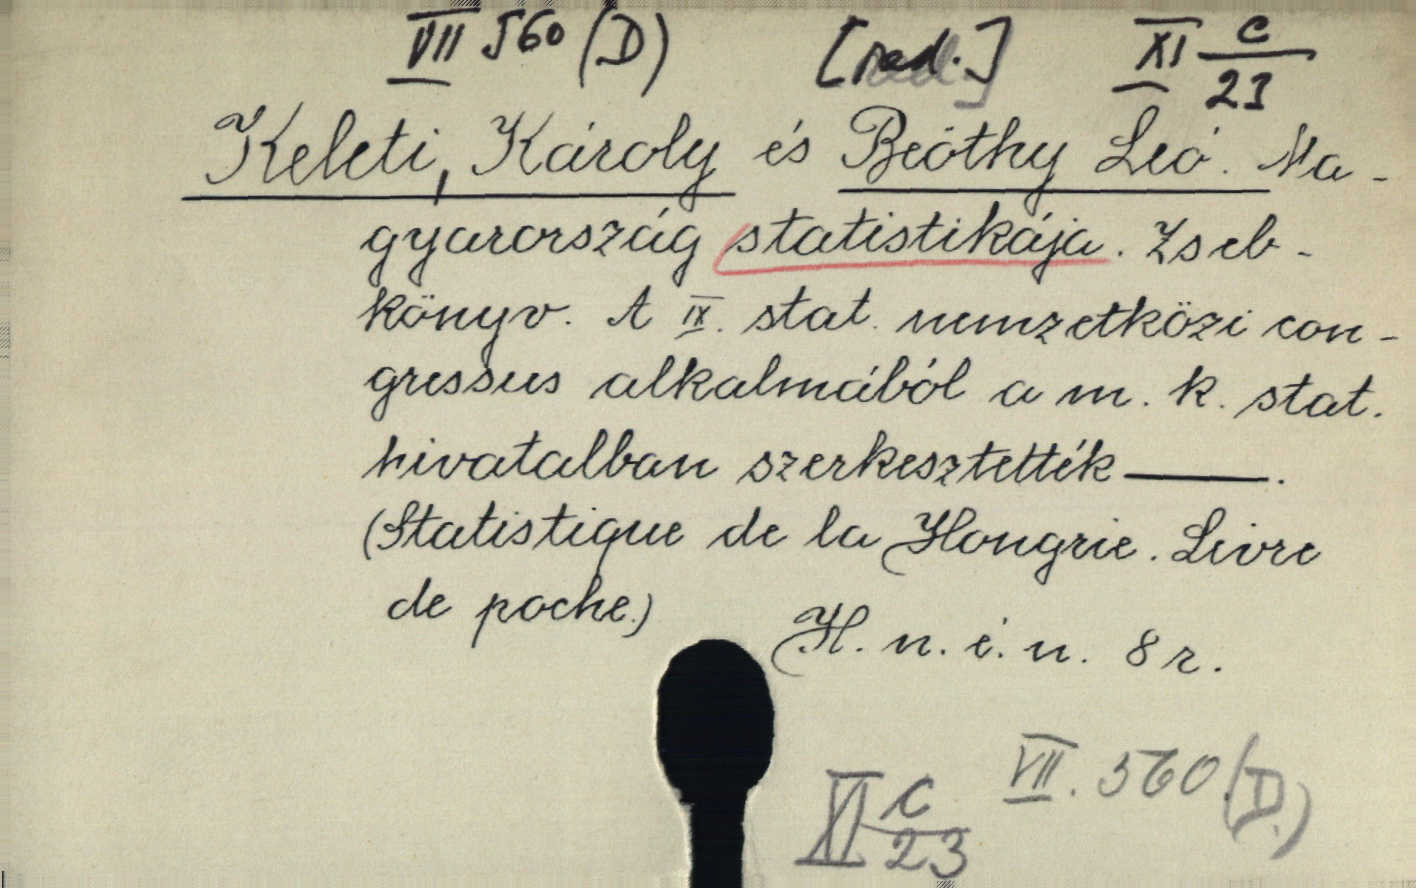 VII 560 (D) [red.] XI C/23
Keleti, Károly és Beöthy Leó. Ma-
gyarország statistikája. Zseb-
könyv. A IX. stat. nemzetközi con-
gressus alkalmából a m. k. stat.
hivatalban szerkesztették ———.
(Statistique de la Hongrie. Livre
de poche.)
H. n. é. n. 8 r.
VII. 560 (D.)
XI C/23